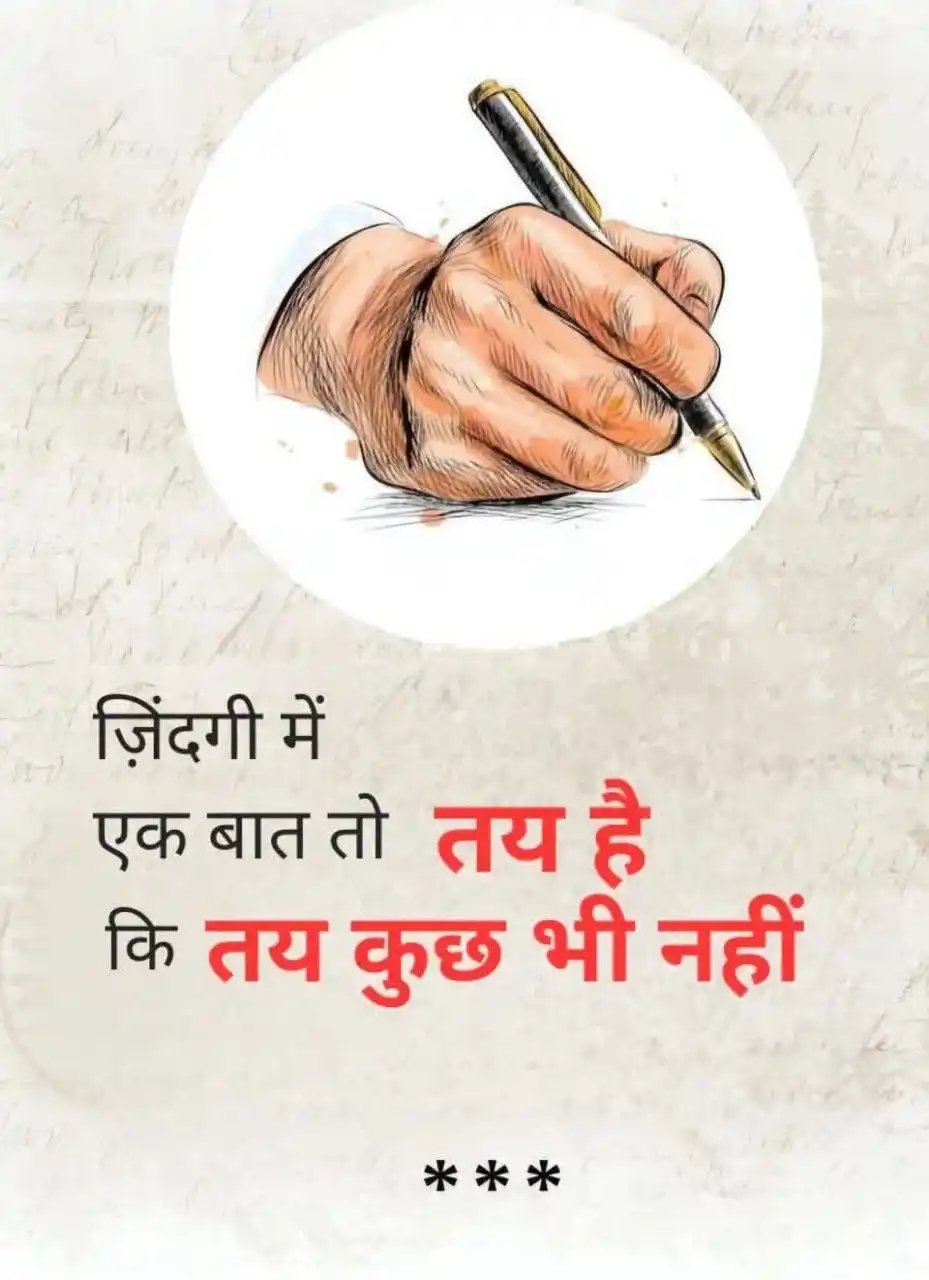 ज़िंदगी में
एक बात तो तय है
कि तय कुछ भी नहीं
***